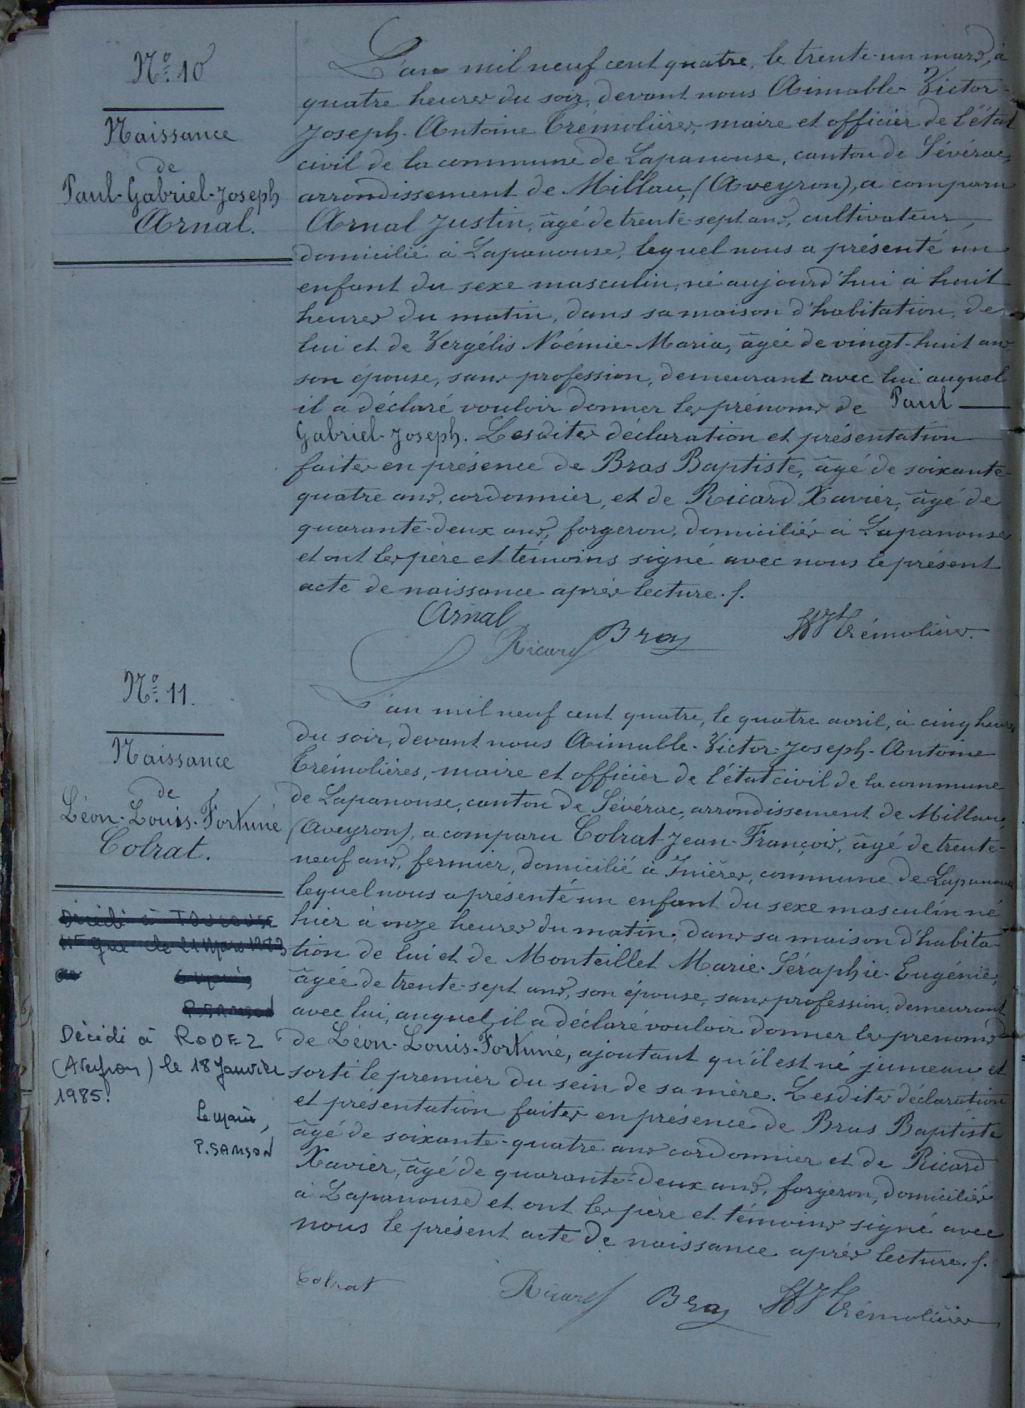 N° 10
Naissance
de
Paul-Gabriel-Joseph
Arnal.
L'an mil neuf cent quatre, le trente-un mars, à
quatre heures du soir, devant nous Aimable-Victor-
Joseph-Antoine Trémolières, maire et officier de l'état
civil de la commune de Lapanouse, canton de Sévérac,
arrondissement de Millau, (Aveyron), a comparu
Arnal Justin, âgé de trente-sept ans, cultivateur
domicilié à Lapanouse, lequel nous a présenté un
enfant du sexe masculin, né aujourd'hui à huit
heures du matin, dans sa maison d'habitation, de
lui et de Vergélis Noémie-Maria, âgée de vingt-huit ans
son épouse, sans profession, demeurant avec lui auquel
il a déclaré vouloir donner les prénoms de Paul
Gabriel-Joseph. Lesdites déclaration et présentation
faites en présence de Bras Baptiste, âgé de soixante-
quatre ans, cordonnier, et de Ricard Xavier, âgé de
quarante-deux ans, forgeron, domiciliés à Lapanouse
et ont les père et témoins signé avec nous le présent
acte de naissance après lecture. /.
Arnal
Ricard Bras Trémolières
N° 11.
Naissance
de
Léon-Louis-Fortuné
Colrat.
Décédé à TOULOUSE
P. SAMSON
Décédé à RODEZ
(Aveyron) le 18 Janvier
1985.
Le Maire,
P. SAMSON
L'an mil neuf cent quatre, le quatre avril, à cinq heures
du soir, devant nous Aimable-Victor-Joseph-Antoine
Trémolières, maire et officier de l'état civil de la commune
de Lapanouse, canton de Sévérac, arrondissement de Millau,
(Aveyron), a comparu Colrat Jean-François, âgé de trente-
neuf ans, fermier, domicilié à Inières, commune de Lapanouse
lequel nous a présenté un enfant du sexe masculin né
hier à onze heures du matin, dans sa maison d'habita-
tion de lui et de Monteillet Marie-Séraphie-Eugénie,
âgée de trente-sept ans, son épouse, sans profession, demeurant
avec lui, auquel il a déclaré vouloir donner les prenoms
de Léon-Louis-Fortuné, ajoutant qu'il est né jumeau et
sorti le premier du sein de sa mère. Lesdites déclaration
et présentation faites en présence de Bras Baptiste
âgé de soixante-quatre ans cordonnier et de Ricard
Xavier, âgé de quarante-deux ans, forgeron, domiciliés
à Lapanouse et ont les père et témoins signé avec
nous le présent acte de naissance après lecture. /.
Colrat Ricard Bras Trémolières